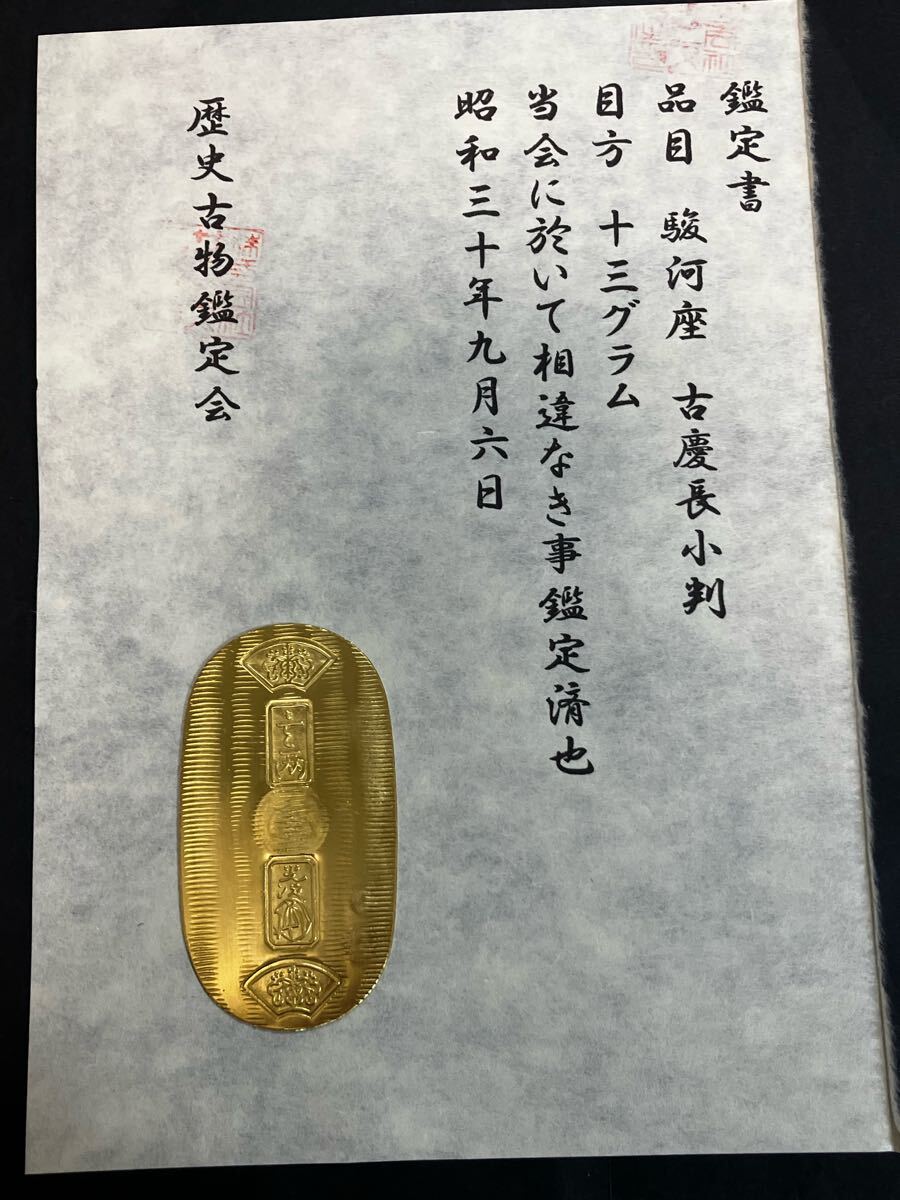 鑑定書
品目 駿河座 古慶長小判
目方 十三グラム
当会に於いて相違なき事鑑定済也
昭和三十年九月六日
歴史古物鑑定会
壹两
光次